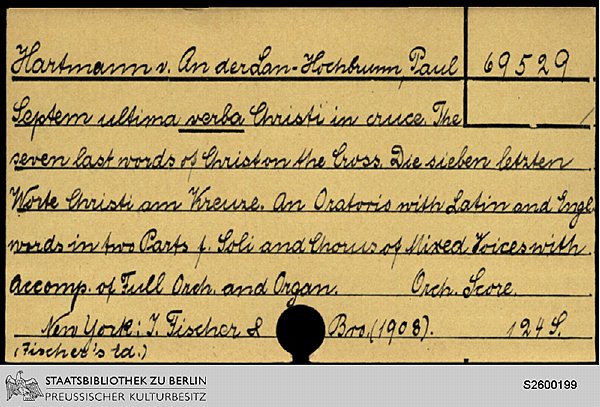 Hartmann v. An der Lan-Hochbrunn, Paul 69529
Septem ultima verba Christi in cruce. The
seven last words of Christ on the Cross. Die sieben letzten
Worte Christi am Kreuze. An Oratorio with Latin and Engl.
words in two Parts f. Soli and Chorus of Mixed Voices with
Accomp. of Full Orch. and Organ. Orch. Score.
New York: J. Fischer & Bro. (1908). 124 S.
(Fischer's Ed.)
STAATSBIBLIOTHEK ZU BERLIN
PREUSSISCHER KULTURBESITZ
S2600199